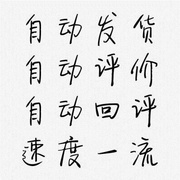 自动发货
自动评价
自动回评
速度一流